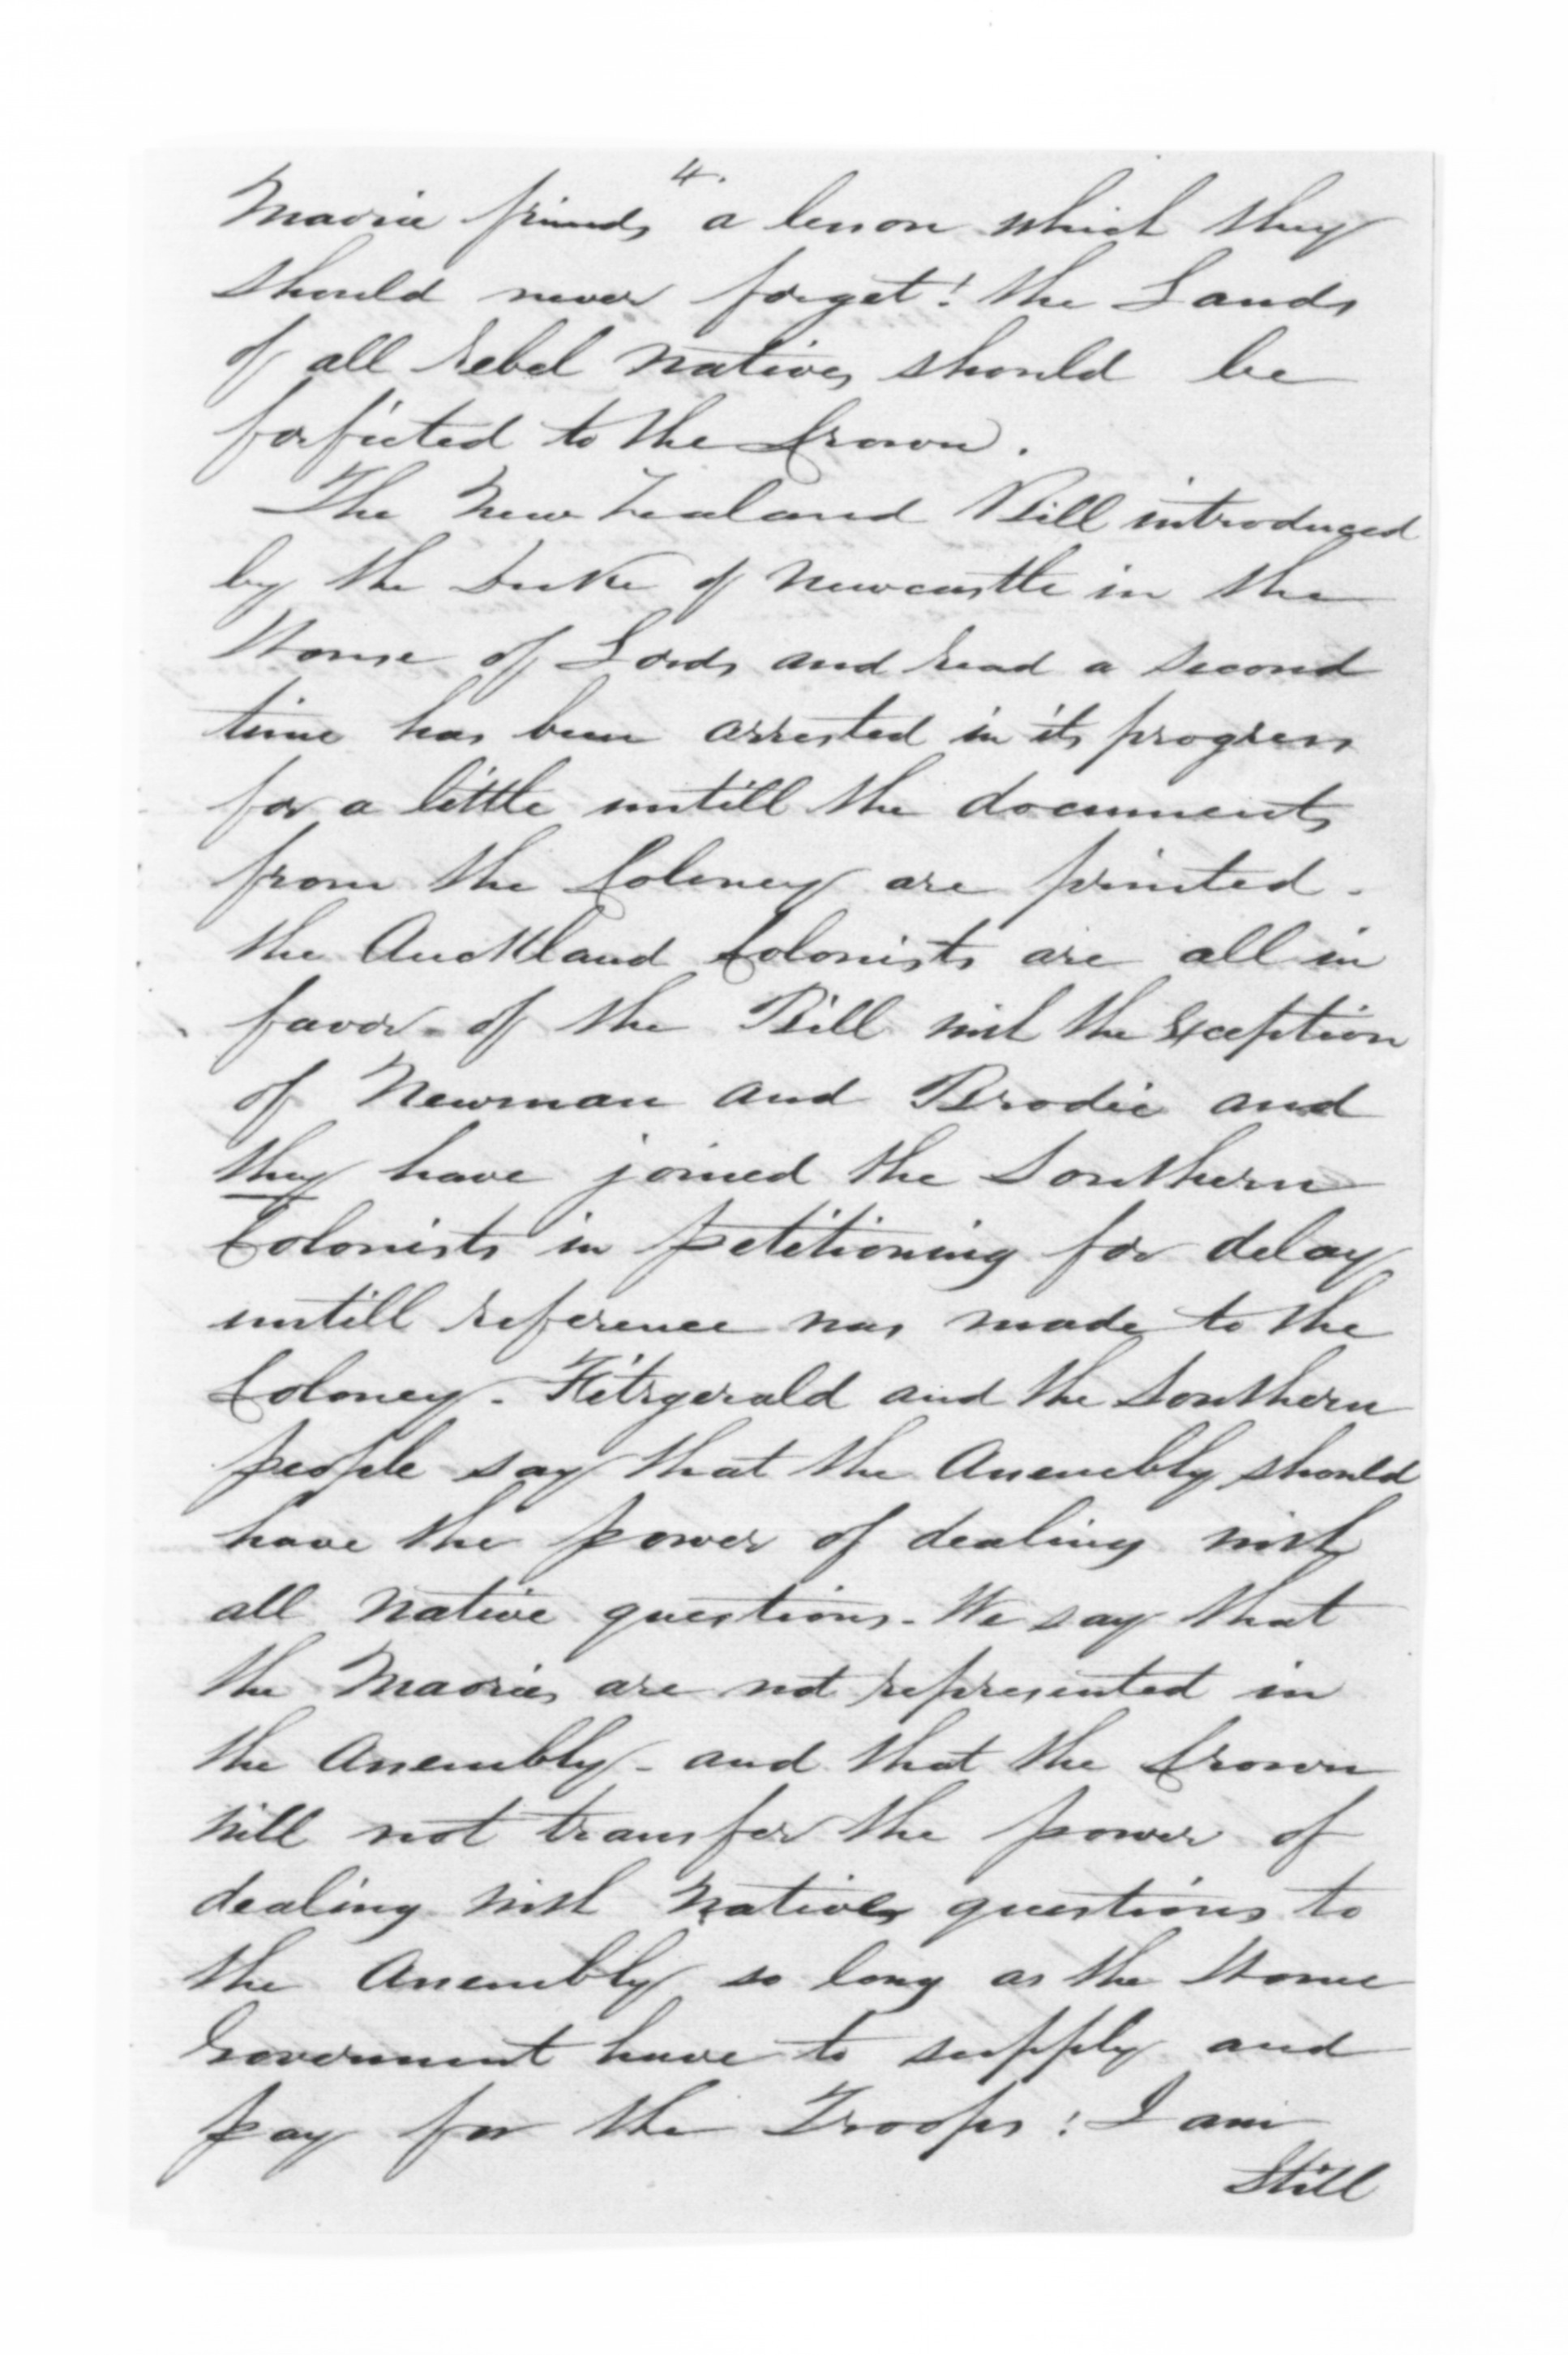 4.
Maorie friends a lesson which they
should never forget! the Lands
of all rebel natives should be
forfieted to the Crown.
The New Zealand Bill introduced
by the Duke of Newcastle in the
House of Lords and read a second
time has been arrested in its progress
for a little untill the documents
from the Coloney are printed -
the Auckland Colonists are all in
favor of the Bill with the exception
of Newman and Brodie and
they have joined the Southern
Colonists in petitioning for delay
untill reference was made to the
Coloney - Fitzgerald and the Southern
people say that the Assembly should
have the power of dealing with
all native questions - We say that
the Maories are not represented in
the Assembly - and that the Crown
will not transfer the power of
dealing with Native questions to
the Assembly so long as the Home
Government have to supply and
pay for the Troops! I am
Still